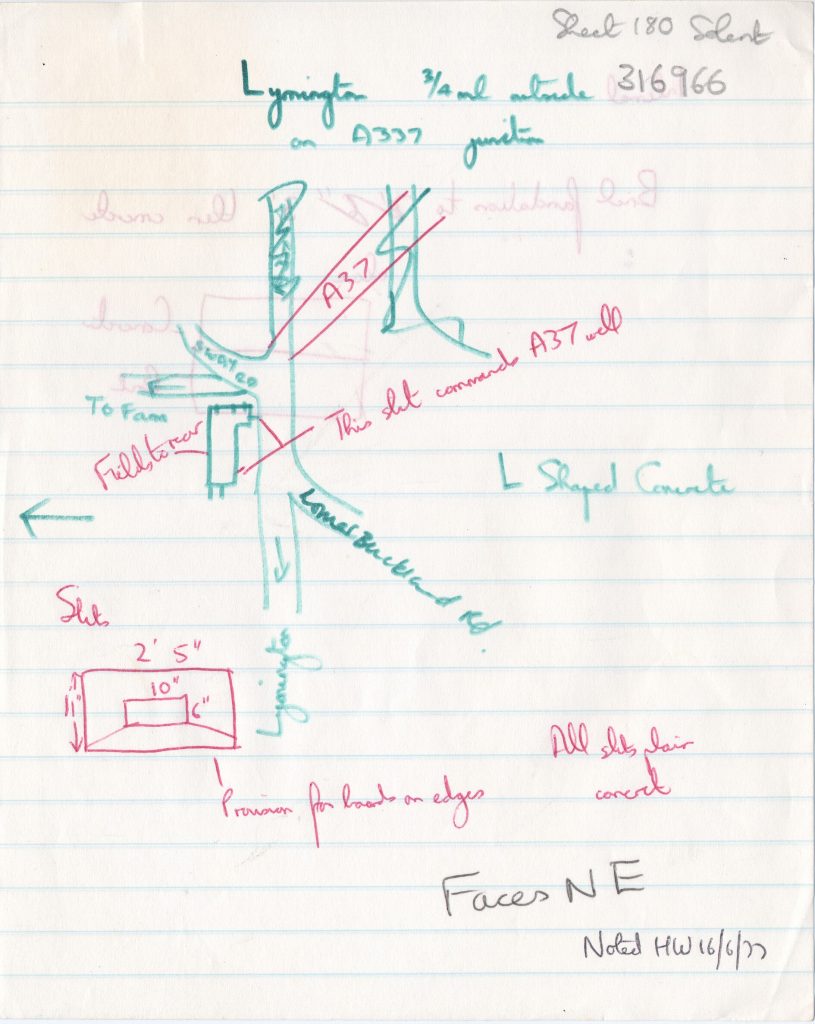 Sheet 180 Solent
316966
Lymington 3/4 ml outside
on A337 junction
A37
SWAY RD
To Farm
This slit commands A37 well
Fields to rear
L Shaped Concrete
Lower Buckland Rd.
Lymington
Slits
2' 5"
10"
11"
6"
Provision for boards on edges
All slits plain
concrete
Faces NE
Noted HW 16/6/77